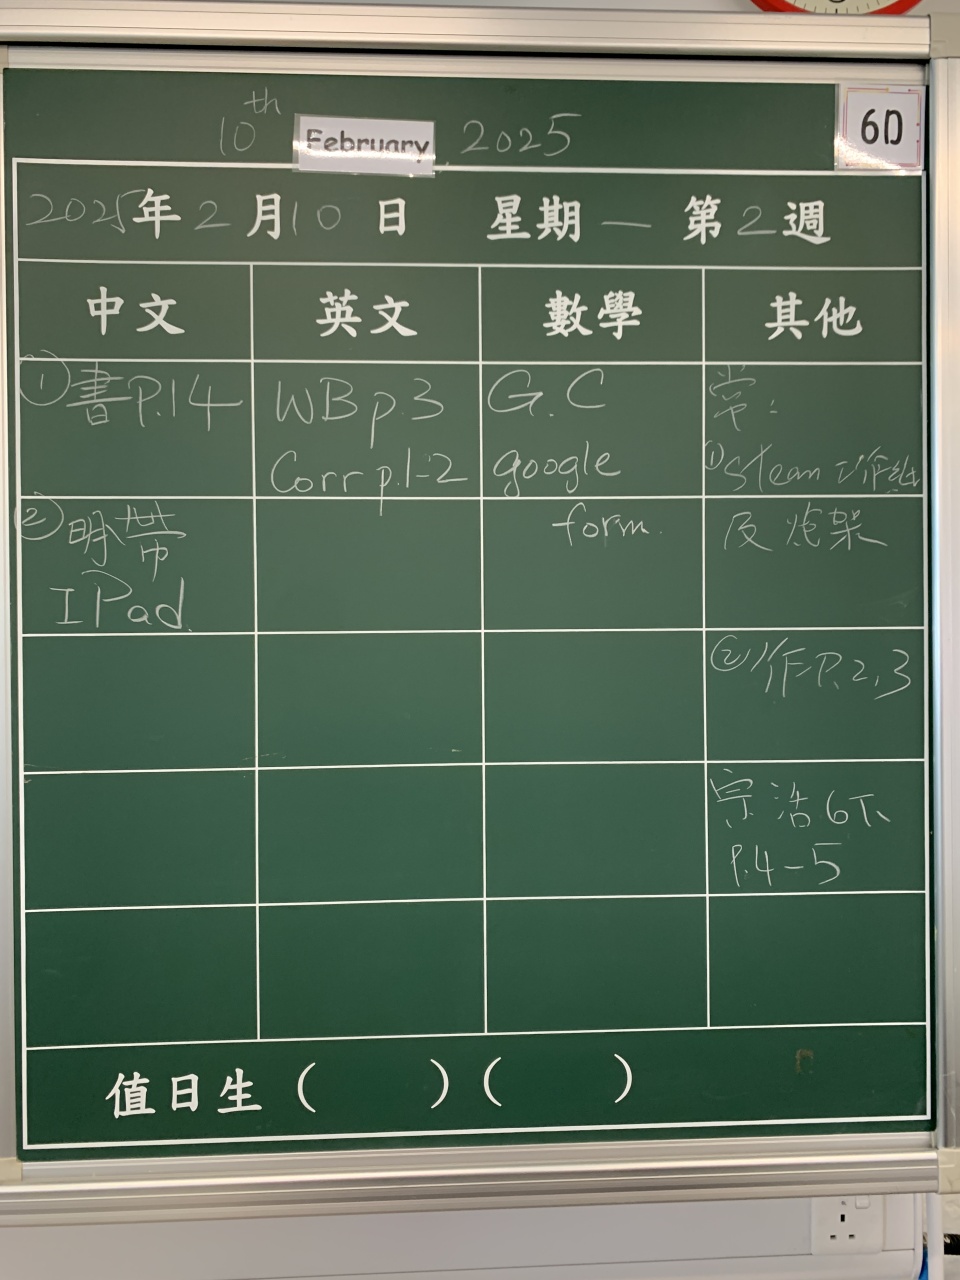 10th February 2025
6D
2025年2月10日 星期一 第2週
中文 英文 數學 其他
①書P.14
②明帶
IPad.
WB p.3
Corr p.1-2
G.C
google
form.
常:
①Steam工作紙
及炮架
②作P.2,3
宗浩6下
P.4-5
值日生( )( )